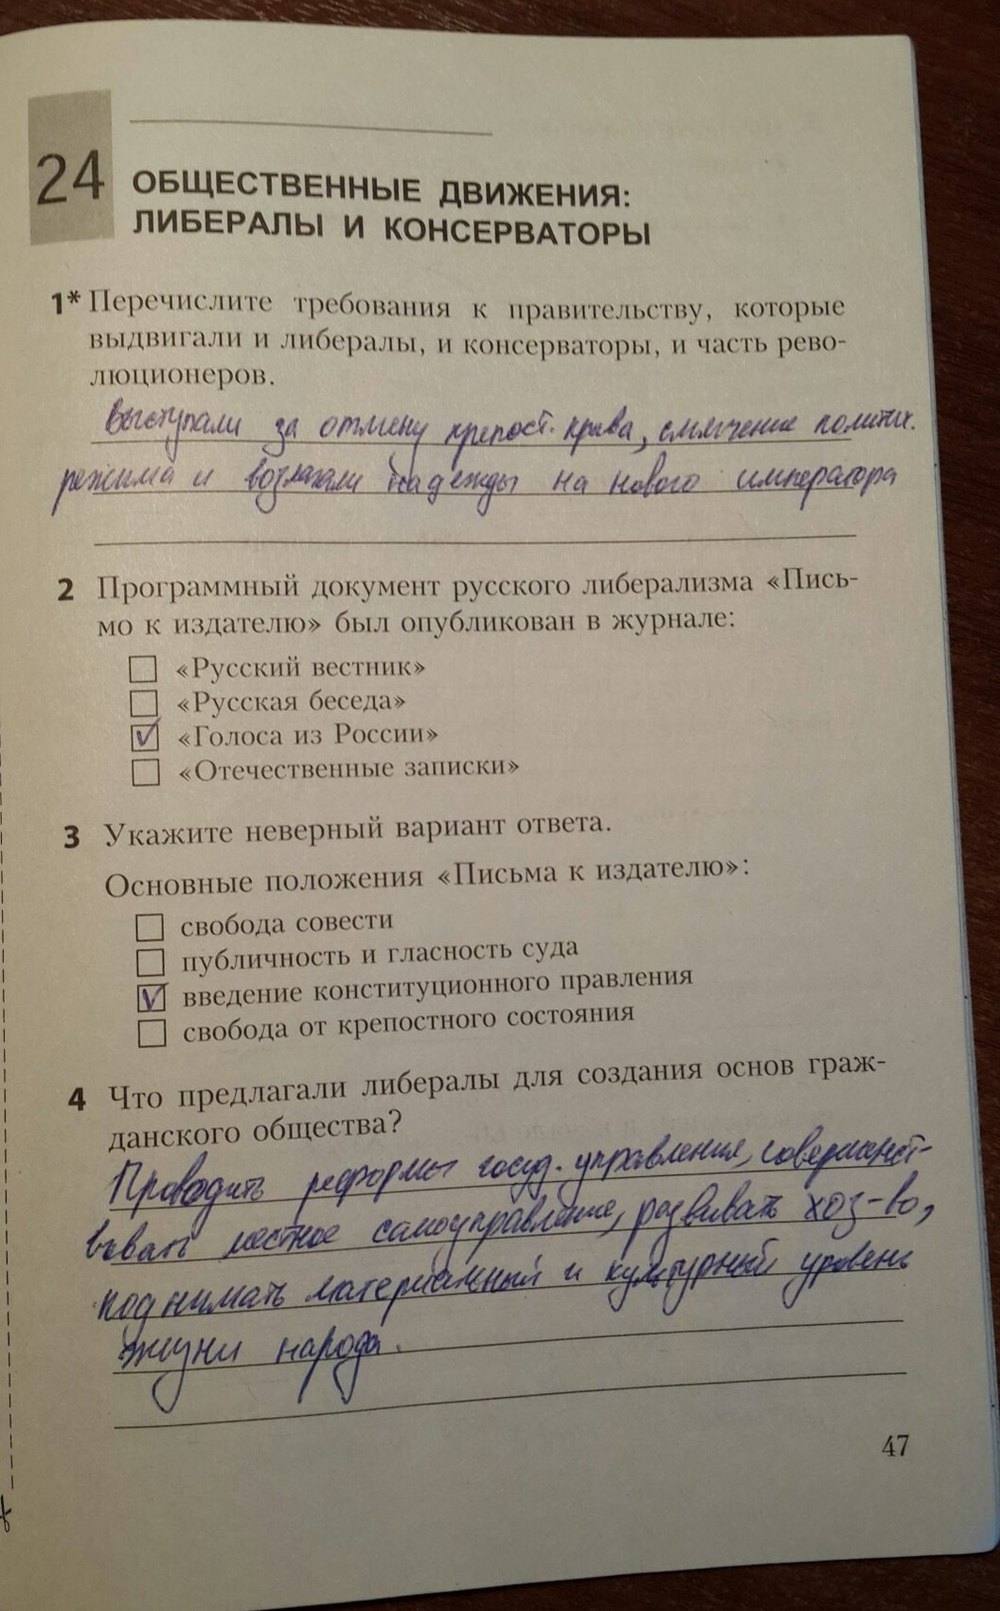 24
ОБЩЕСТВЕННЫЕ ДВИЖЕНИЯ:
ЛИБЕРАЛЫ И КОНСЕРВАТОРЫ
1* Перечислите требования к правительству, которые
выдвигали и либералы, и консерваторы, и часть рево-
люционеров.
Выступали за отмену крепост. права, смягчение политич.
режима и возлагали надежды на нового императора
2 Программный документ русского либерализма «Пись-
мо к издателю» был опубликован в журнале:
☐ «Русский вестник»
☐ «Русская беседа»
☑ «Голоса из России»
☐ «Отечественные записки»
3 Укажите неверный вариант ответа.
Основные положения «Письма к издателю»:
☐ свобода совести
☐ публичность и гласность суда
☑ введение конституционного правления
☐ свобода от крепостного состояния
4 Что предлагали либералы для создания основ граж-
данского общества?
Проводить реформы госуд. управления, совершенст-
вовать местное самоуправление, развивать хоз-во,
поднимать материальный и культурный уровень
жизни народа.
47